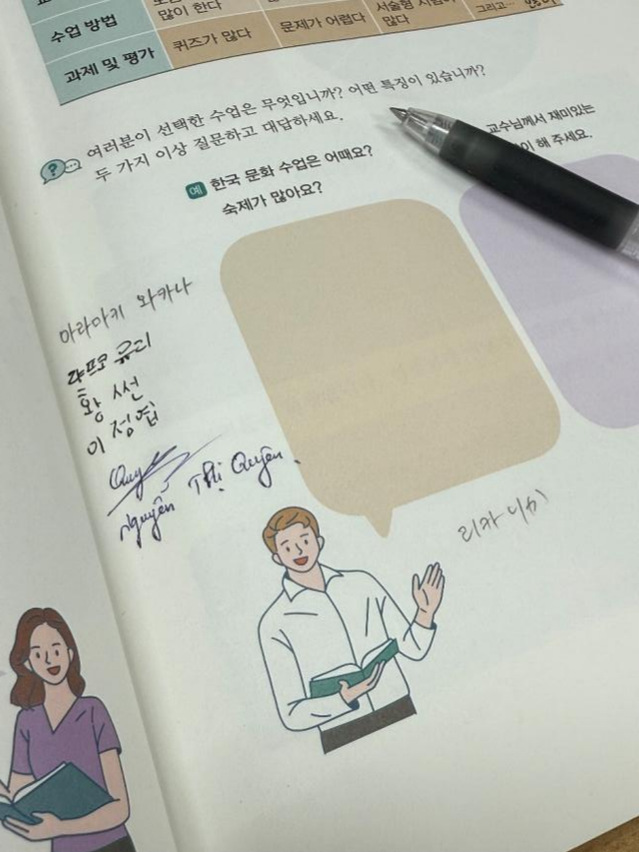 많이 한다
수업 방법
퀴즈가 많다
문제가 어렵다
서술형
많다
그리고…
과제 및 평가
여러분이 선택한 수업은 무엇입니까? 어떤 특징이 있습니까?
두 가지 이상 질문하고 대답하세요.
교수님께서 재미있는
해 주세요.
예 한국 문화 수업은 어때요?
숙제가 많아요?
아라마키 와카나
유리
황 썬
이 정협
Quy
Nguyễn Thị Quyên.
리카